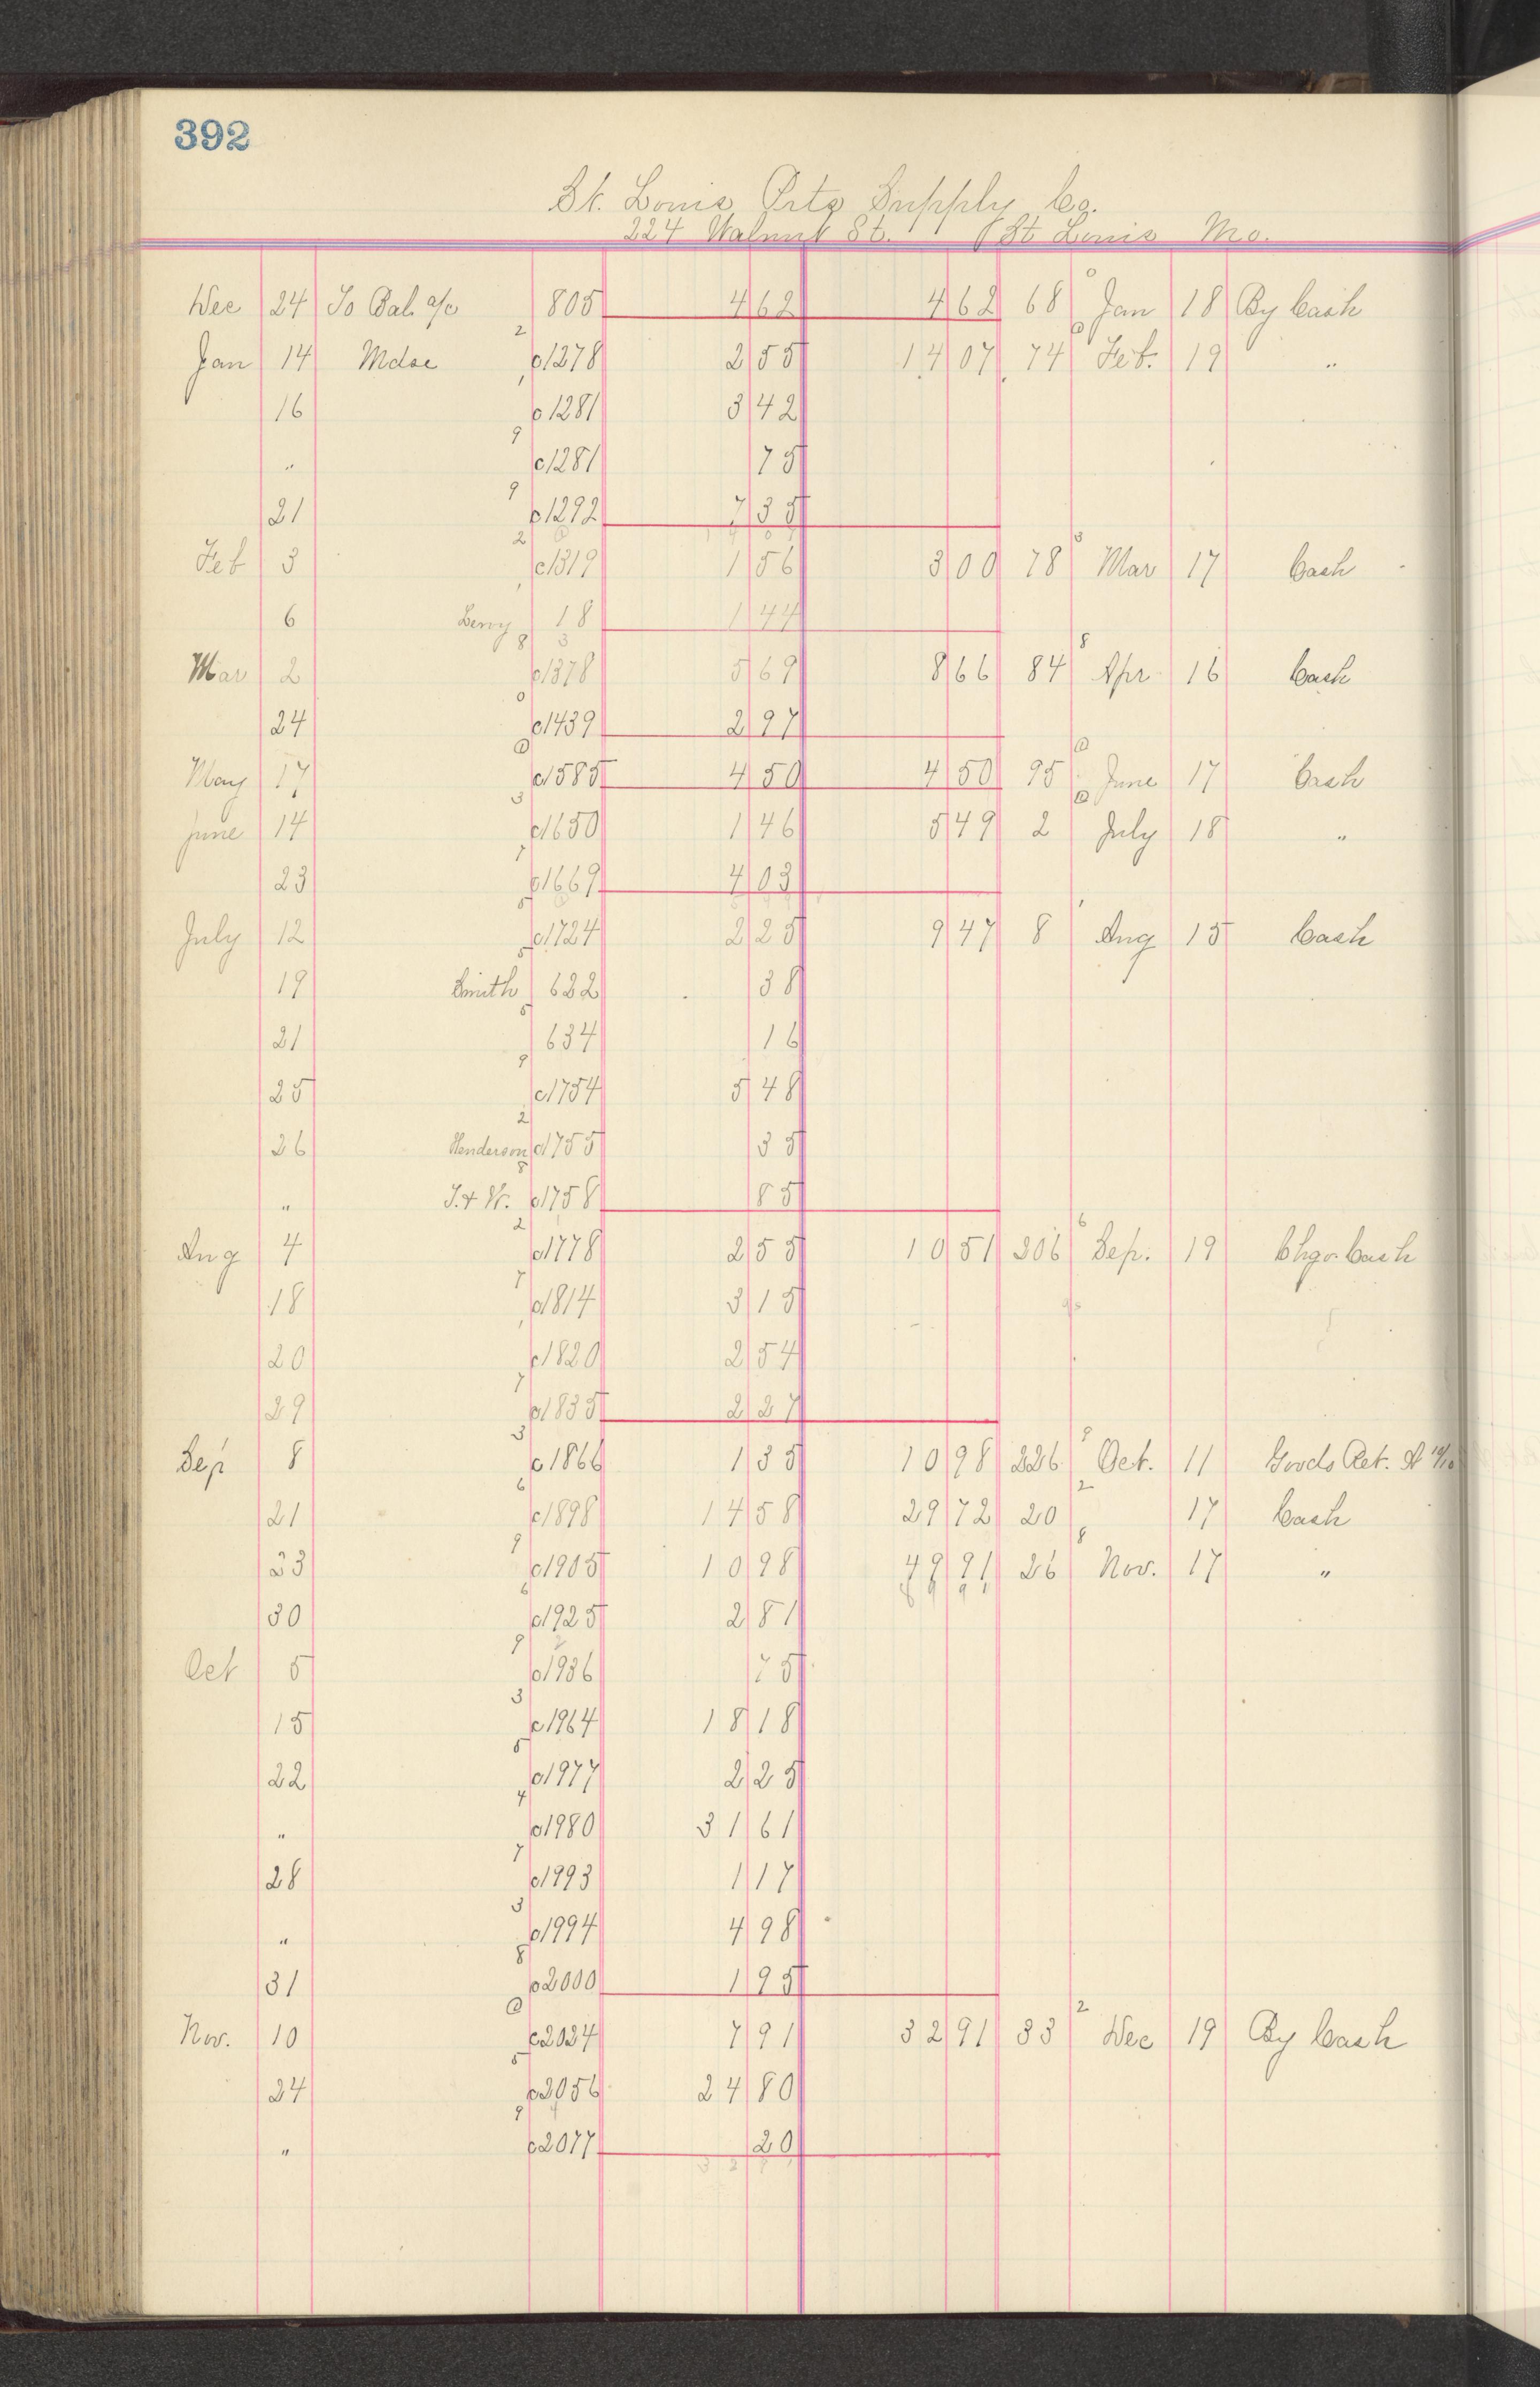 392
St. Louis Pts Supply Co.
224 Walnut St. St Louis Mo.
Dec 24 To Bal. a/c 805 462 462 68 Jan 18 By Cash
Jan 14 Mdse c1278 255 1407 74 Feb. 19 "
16 c1281 342
" c1281 75
21 c1292 735
Feb 3 c1319 156 300 78 Mar 17 Cash
6 18 144
Mar 2 c1378 569 866 84 Apr 16 Cash
24 c1439 297
May 17 c1585 450 450 95 June 17 Cash
June 14 c1650 146 549 2 July 18 "
23 c1669 403
July 12 c1724 225 947 8 Aug 15 Cash
19 Smith 632 38
21 634 16
25 c1754 548
26 Henderson c1755 35
" c1758 85
Aug 4 c1778 255 1051 206 Sep. 19 Chgo. Cash
18 c1814 315
20 c1820 254
29 c1835 227
Sep 8 c1866 135 1098 226 Oct. 11 Goods Ret.
21 c1898 1458 2972 20 17 Cash
23 c1905 1098 4991 26 Nov. 17 "
30 c1925 281
Oct 5 c1936 75
15 c1964 1818
22 c1977 225
" c1980 3161
28 c1993 117
" c1994 498
31 c2000 195
Nov. 10 c2024 791 3291 33 Dec 19 By Cash
24 c2056 2480
" c2077 20